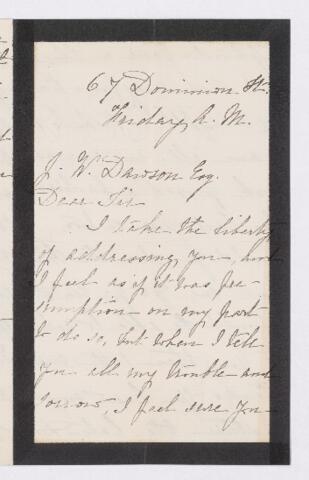 67 Dominion St.
Friday A. M.
J. W. Dawson Esq.
Dear Sir
I take the liberty
of addressing you and
I feel as if it was pre-
sumption on my part
to do so, but when I tell
you all my trouble and
sorrows, I feel sure you